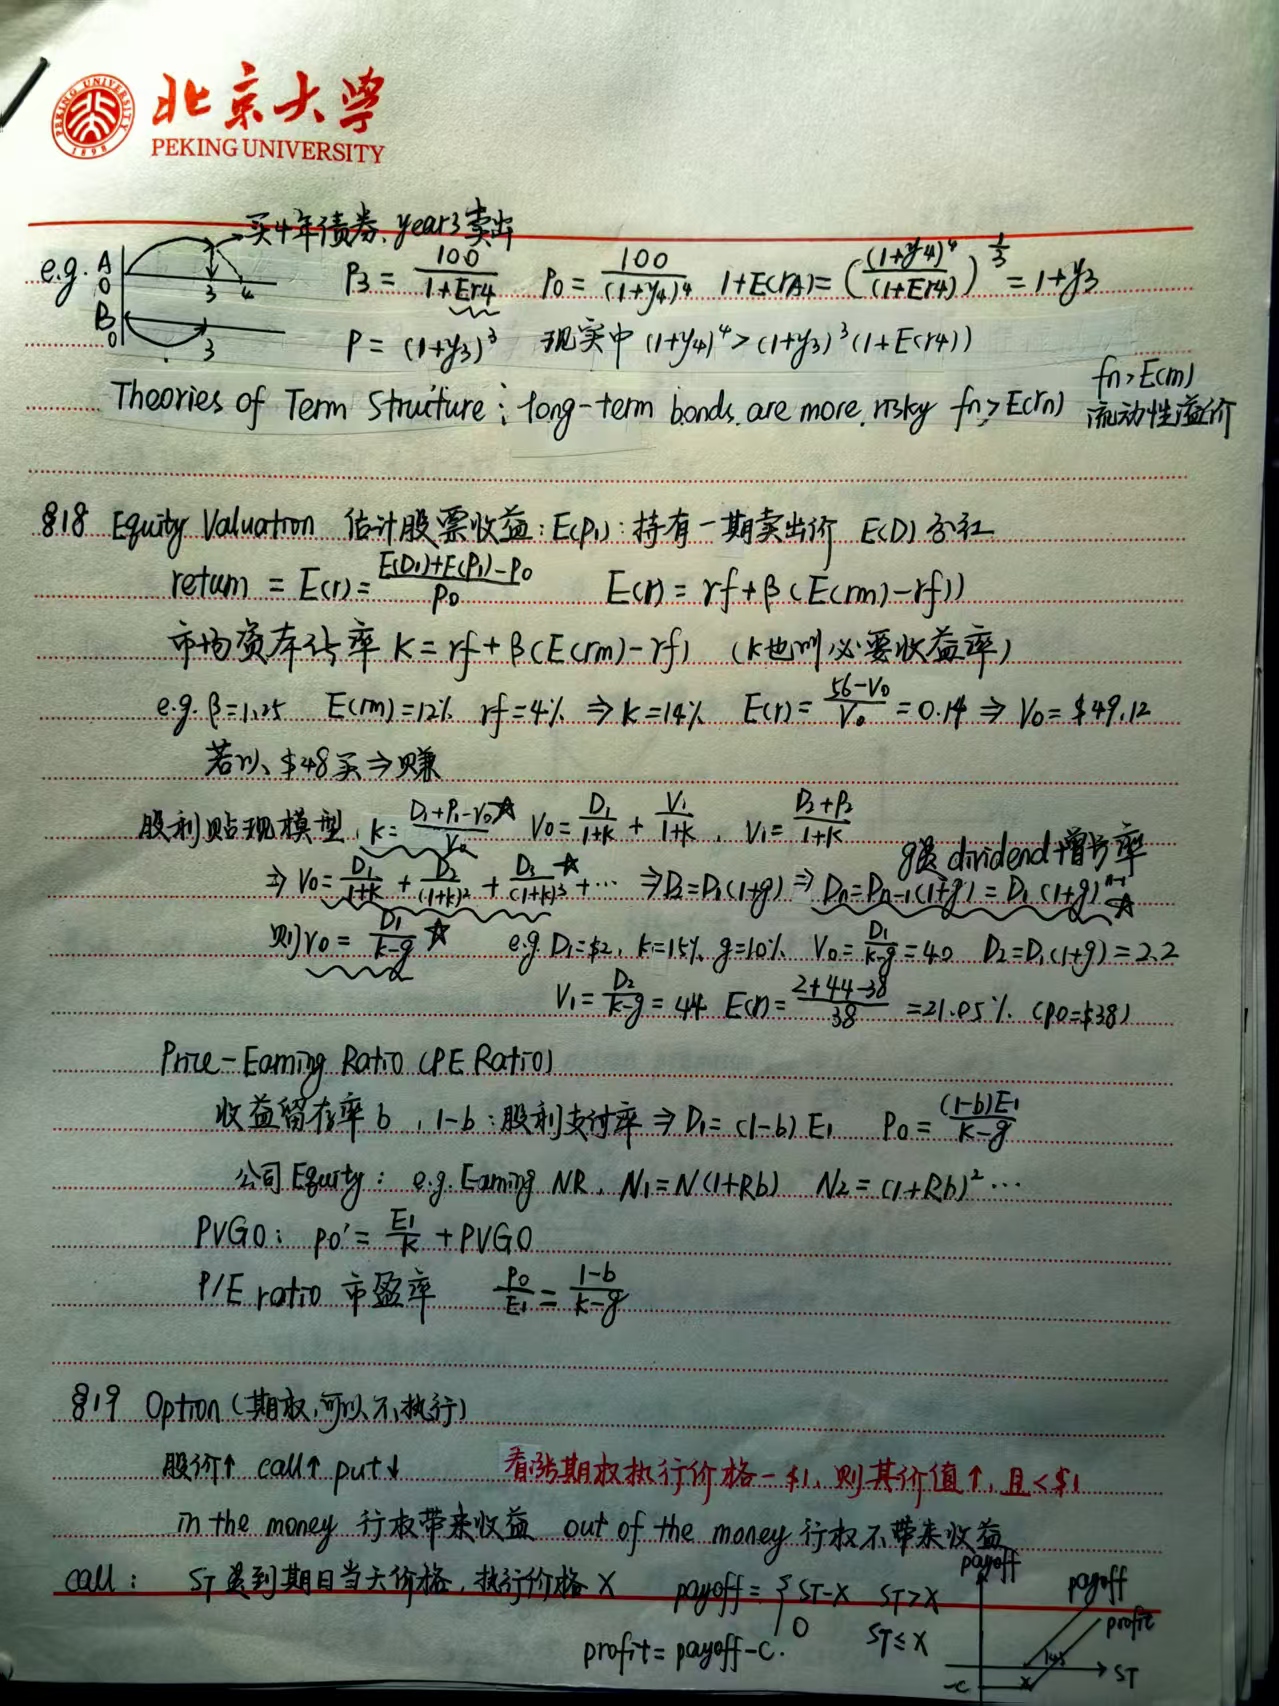 北京大学
PEKING UNIVERSITY
PEKING UNIVERSITY 1898
买4年债券, year3卖出
e.g. A 0 3 4 P3 = 100/(1+Er4) P0 = 100/(1+y4)^4 1+E(rA) = ((1+y4)^4/(1+Er4))^(1/3) = 1+y3
B 0 3 P = (1+y3)^3 现实中 (1+y4)^4 > (1+y3)^3 (1+E(r4))
Theories of Term Structure: long-term bonds are more risky fn > E(rn) fn > E(rn)
流动性溢价
§18 Equity Valuation 估计股票收益: E(P1): 持有一期卖出价 E(D) 分红
return = E(r) = (E(D1)+E(P1)-P0)/P0 E(r) = rf + β(E(rm)-rf))
市场资本化率 K = rf + β(E(rm)-rf) (K也叫必要收益率)
e.g. β=1.25 E(rm)=12% rf=4% ⇒ K=14% E(r) = (56-V0)/V0 = 0.14 ⇒ V0 = $49.12
若以 $48买 ⇒ 赚
股利贴现模型, K = (D1+P1-V0)/V0 ☆ V0 = D1/(1+K) + V1/(1+K), V1 = (D2+P2)/(1+K)
g是 dividend 增长率
⇒ V0 = D1/(1+K) + D2/(1+K)^2 + D3/(1+K)^3 + ⋯ ☆ ⇒ D2 = D1(1+g) ⇒ Dn = Dn-1(1+g) = D1(1+g)^(n-1) ☆
则 V0 = D1/(K-g) ☆ e.g. D1=$2, K=15%, g=10% V0 = D1/(K-g) = 40 D2 = D1(1+g) = 2.2
V1 = D2/(K-g) = 44 E(r) = (2+44-38)/38 = 21.05% (P0=$38)
Price-Earning Ratio (PE Ratio)
收益留存率 b, 1-b: 股利支付率 ⇒ D1 = (1-b)E1 P0 = (1-b)E1/(K-g)
公司 Equity: e.g. Earning NR, N1 = N(1+Rb) N2 = (1+Rb)^2 ⋯
PVGO: P0' = E1/K + PVGO
P/E ratio 市盈率 P0/E1 = (1-b)/(K-g)
§19 Option (期权, 可以不执行)
股价↑ call↑ put↓ 看涨期权执行价格-$1, 则其价值↑, 且<$1
in the money 行权带来收益 out of the money 行权不带来收益
call: ST是到期日当天价格, 执行价格 X payoff = { ST-X ST>X
0 ST≤X
profit = payoff-C.
payoff payoff
profit
145
-C X ST